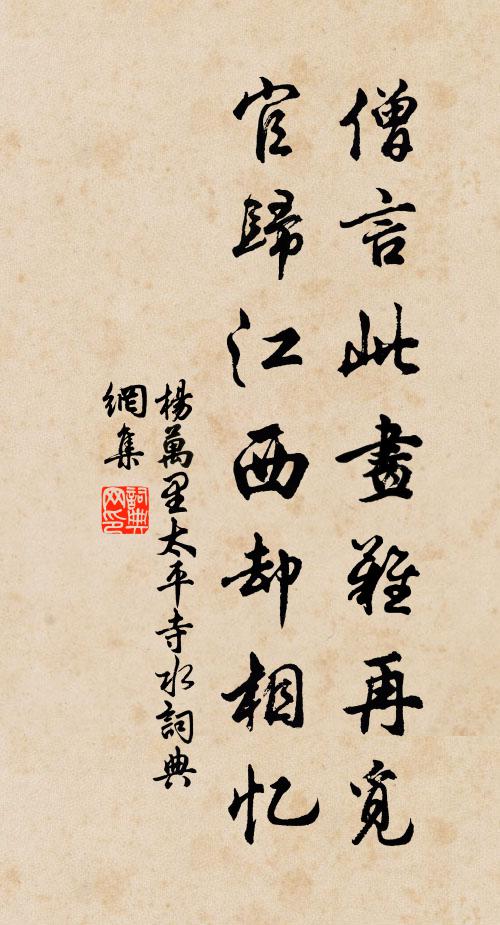 僧言此畫難再覓
官歸江西却相忆
楊萬里太平寺水詞典
網集
詞典網印